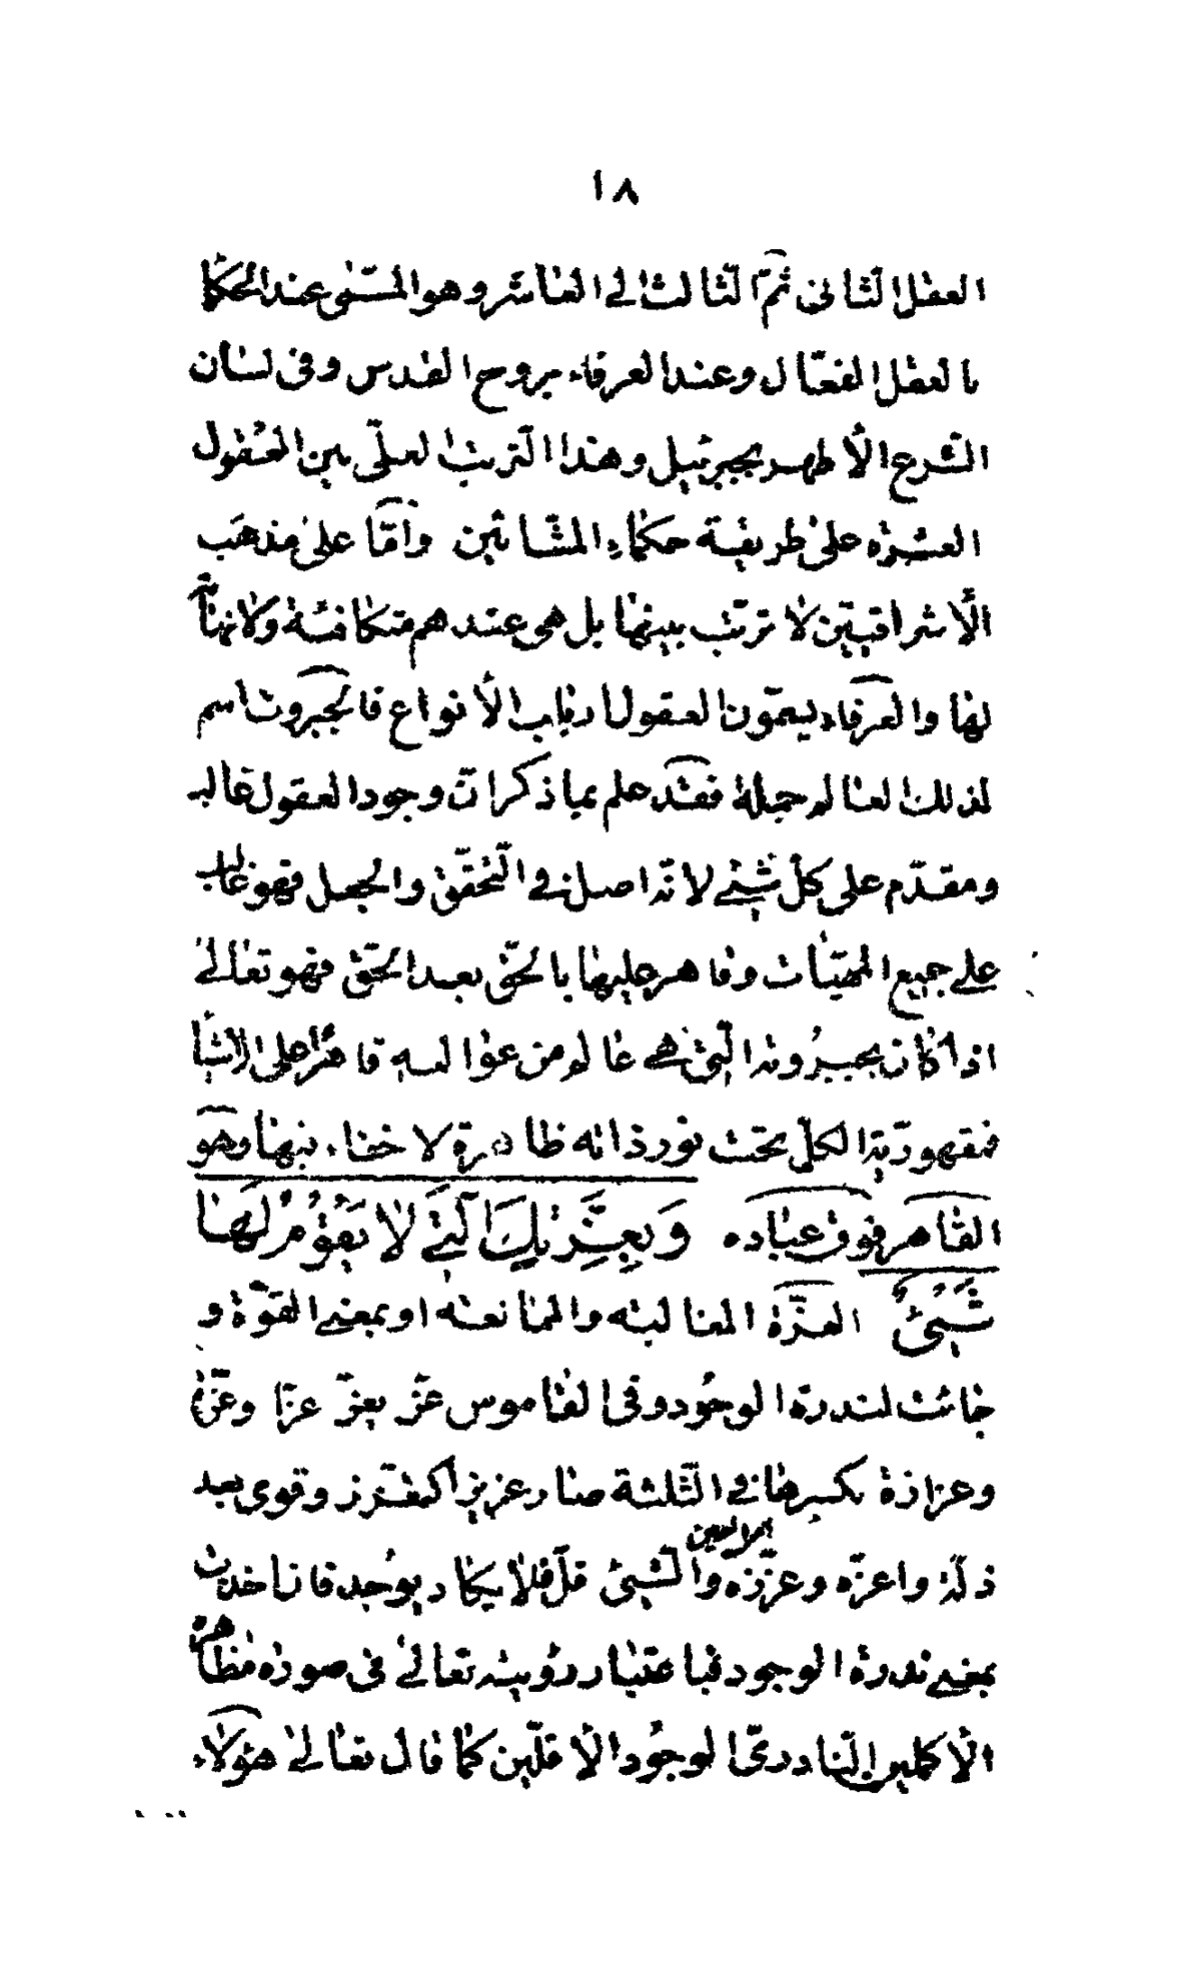 ١٨
العقل الثانى ثمّ الثالث الى العاشر وهو المسمّى عند الحكماء
بالعقل الفعّال وعند العرفاء بروح القدس وفى لسان
الشّرع الأطهر بجبرئيل وهذا الترتيب العلّى بين العقول
العشرة على طريقة حكماء المشّائين وأمّا على مذهب
الأشراقيّين لا ترتّب بينها بل هى عندهم متكافئة ولا نهاية
لها والعرفاء يسمّون العقول ارباب الأنواع فالجبروت اسم
لذلك العالم جملة فقد علم بما ذكر انّ وجود العقول غالب
ومقدّم على كلّ شيئ لانّه اصل فى التحقّق والجعل فهو غالب
على جميع المهيّات وقاهر عليها بالحقّ بعد الحقّ فهو تعالى
اذا كان بجبروته الّتى هى عالم من عوالمه قاهرا على الأشياء
فمقهوريّة الكلّ تحت نور ذاته ظاهرة لا خفاء فيها وهو
القاهر فوق عباده وَبِعِزَّتِكَ الَّتى لا يَقُومُ لَها
شَيْئٌ العزّة المغالبة والممانعة او بمعنى القوّة و
جائت لندرة الوجود وفى القاموس عزّ يعزّ عزّا وعزّة
وعزازة بكسرها فى الثّلثة صار عزيزا كتعزّز وقوى بعد
ذلّة واعزّه وعزّزه والشّيئ قلّ فلا يكاد يوجد فان اخذت
بمعنى ندرة الوجود فباعتبار رؤيته تعالى فى صورة مظاهره
الأكملين النّادرى الوجود الأقلّين كما قال تعالى هؤلاء